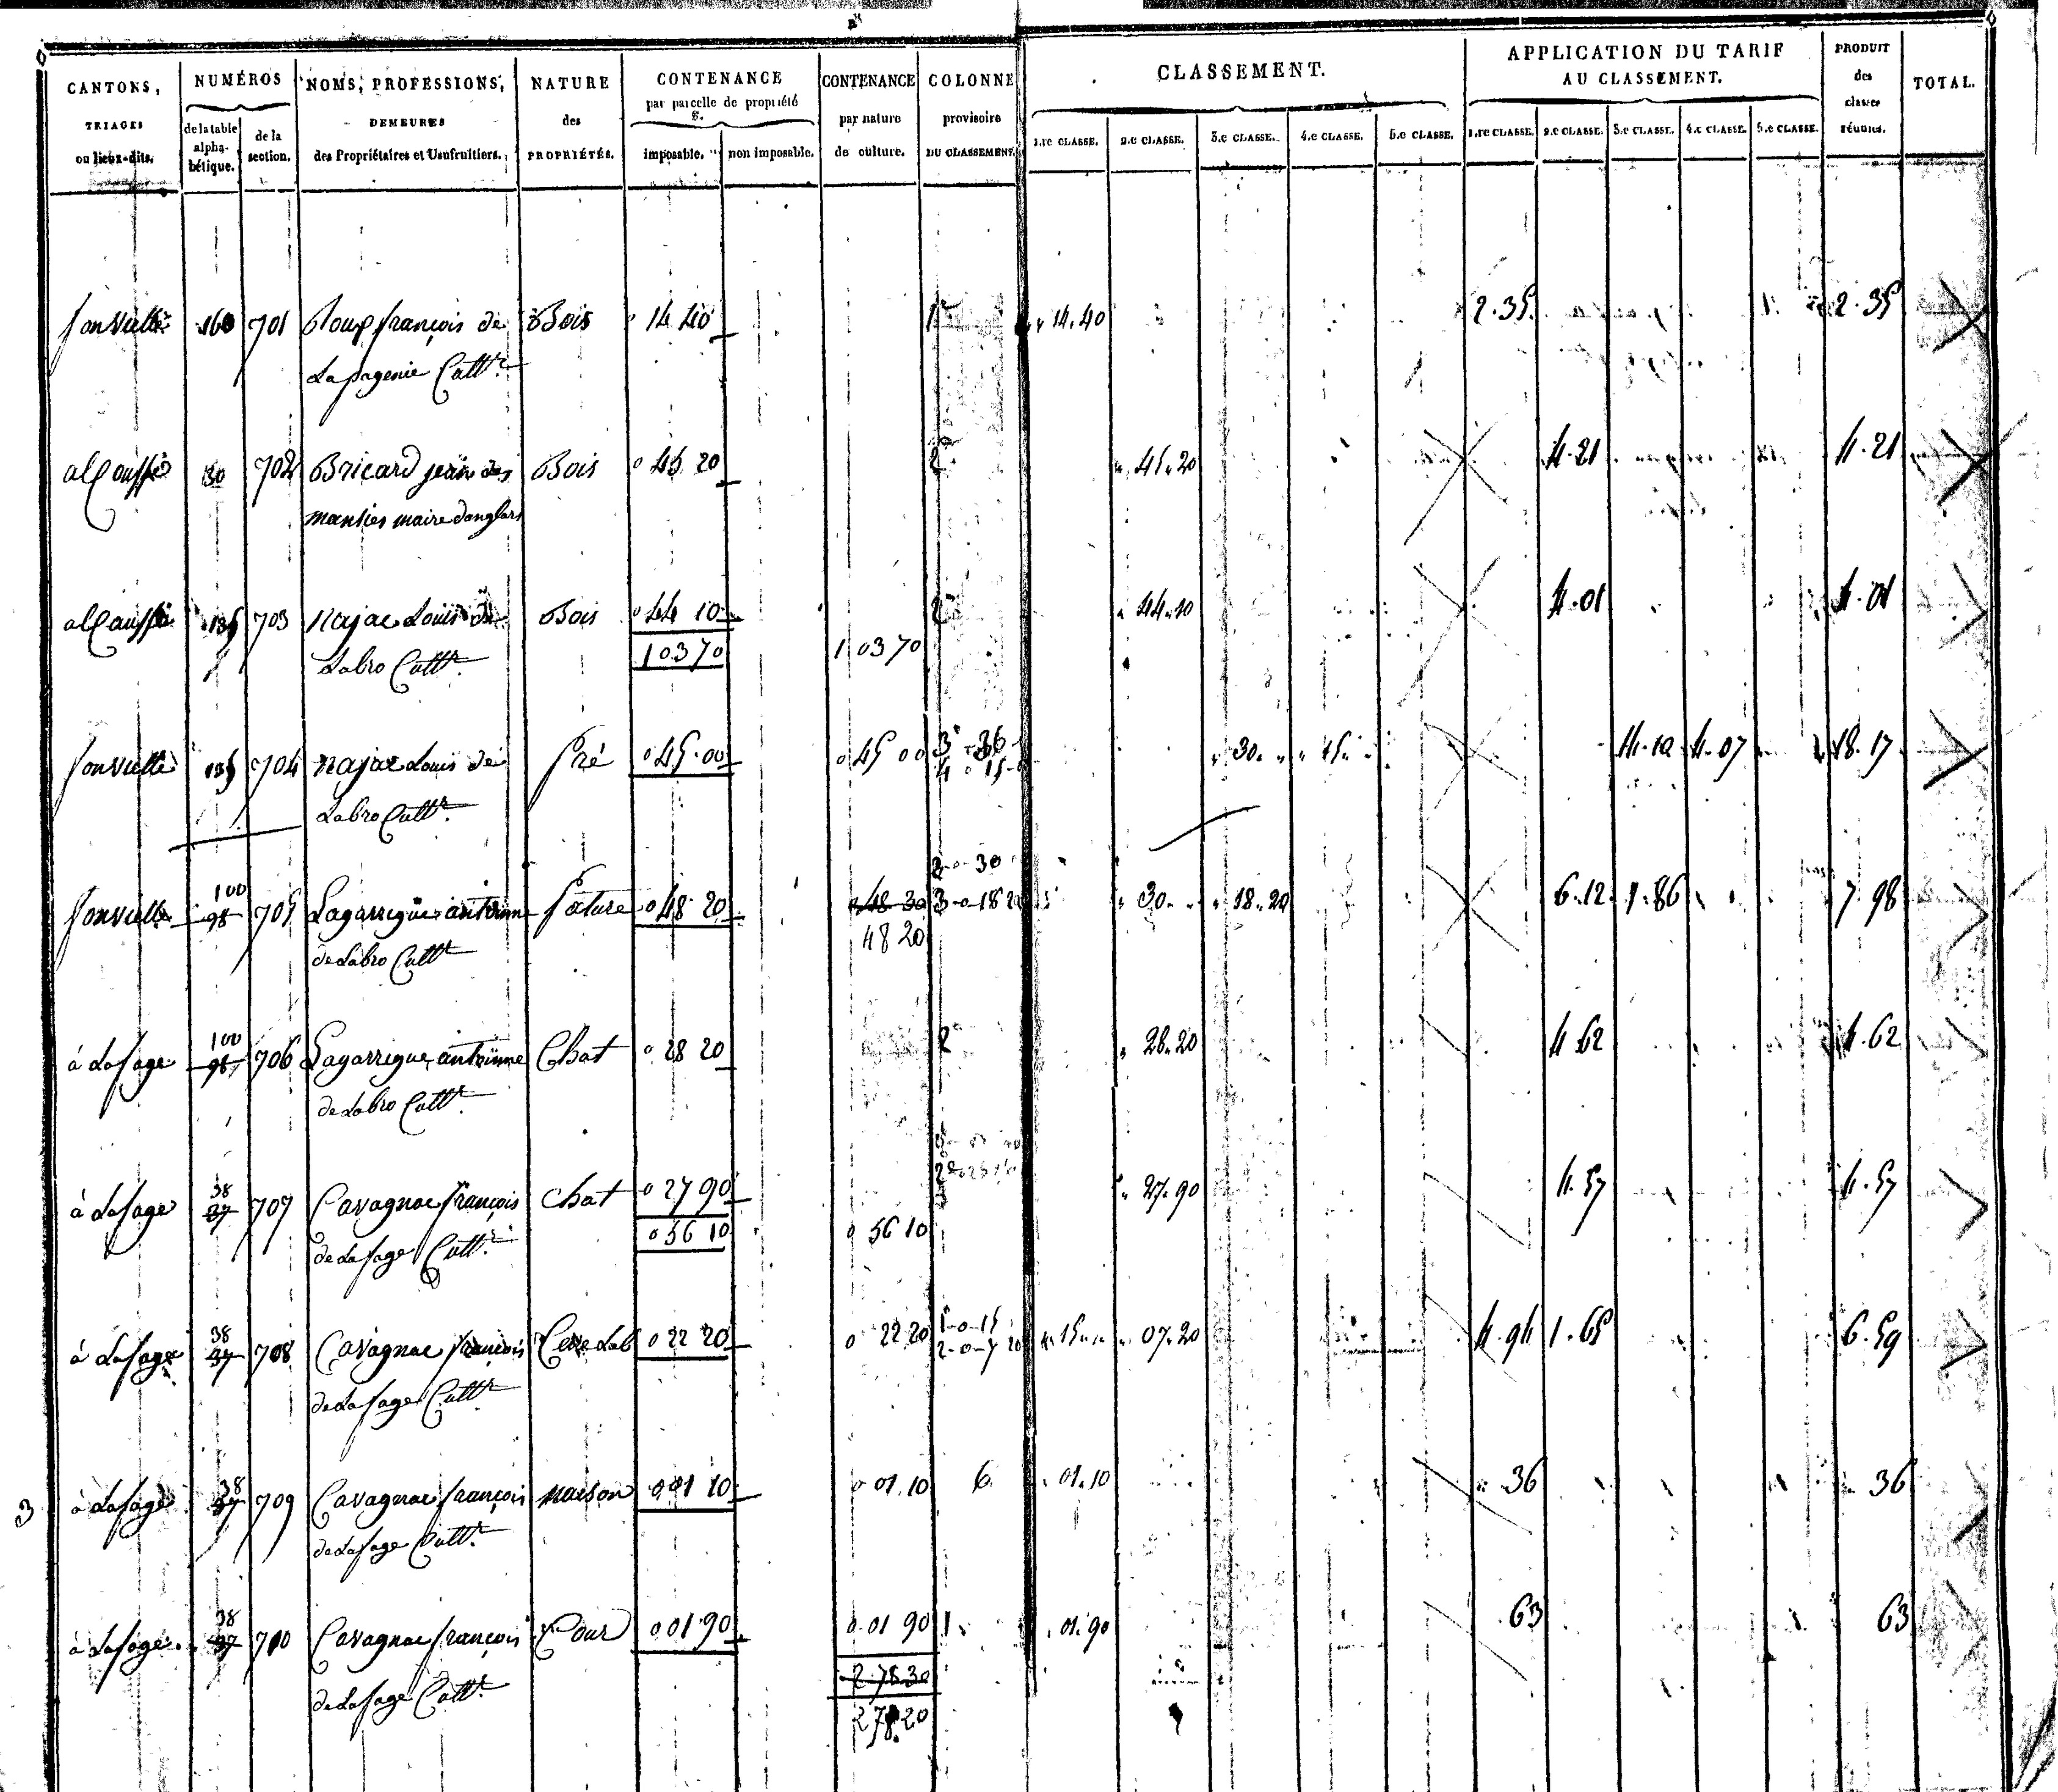 CANTONS, TRIAGES ou lieux-dits. | NUMÉROS de la table alphabétique. | de la section. | NOMS, PROFESSIONS, DEMEURES des Propriétaires et Usufruitiers. | NATURE des PROPRIÉTÉS. | CONTENANCE par parcelle de propriété imposable. | non imposable. | CONTENANCE par nature de culture. | COLONNE provisoire DU CLASSEMENT. | CLASSEMENT. 1.re CLASSE. | 2.e CLASSE. | 3.e CLASSE. | 4.e CLASSE. | 5.e CLASSE. | APPLICATION DU TARIF AU CLASSEMENT. 1.re CLASSE. | 2.e CLASSE. | 3.e CLASSE. | 4.e CLASSE. | 5.e CLASSE. | PRODUIT des classes réunies. | TOTAL.
160 701 françois de Bois 14 40 1 14.40 2.35 2.35
Lapagenie Cultr
30 702 Bricard jean des Bois 0 45 20 2 45.20 4.21 4.21
maire danglars
135 703 Najac Louis de Bois 0 44 10 2 44.10 4.01 4.01
Labro Cultr 1 03 70 1 03 70
135 704 najac Louis de Pré 0 45.00 0 45 00 3 30 4 0 15 30 15 14.10 4.07 18.17
Labro Cultr
2-0-30
100
98 705 Lagarrigue antoinne Pature 0 48 20 48 30 3-0-18 20 30 18.20 6.12 1.86 7.98
de Labro Cultr 48 20
100
98 706 Lagarrigue antoinne Chat 0 28 20 2 28.20 4.62 4.62
de Labro Cultr
à Lafage 38
37 707 Cavagnac françois Chat 0 27 90 27.90 4.57 4.57
de Lafage Cultr 0 56 10 0 56 10
à Lafage 38
37 708 Cavagnac françois Terre Lab 0 22 20 0 22 20 1-0-15 2-0-7 20 15 07.20 4.94 1.65 6.59
de Lafage Cultr
3 à Lafage 38
37 709 Cavagnac françois maison 0 01 10 0 01.10 6 01.10 36 36
de Lafage Cultr
à Lafage 38
37 710 Cavagnac françois Cour 0 01 90 0 01 90 1 01.90 63 63
de Lafage Cultr 2 78 30
2 78.20